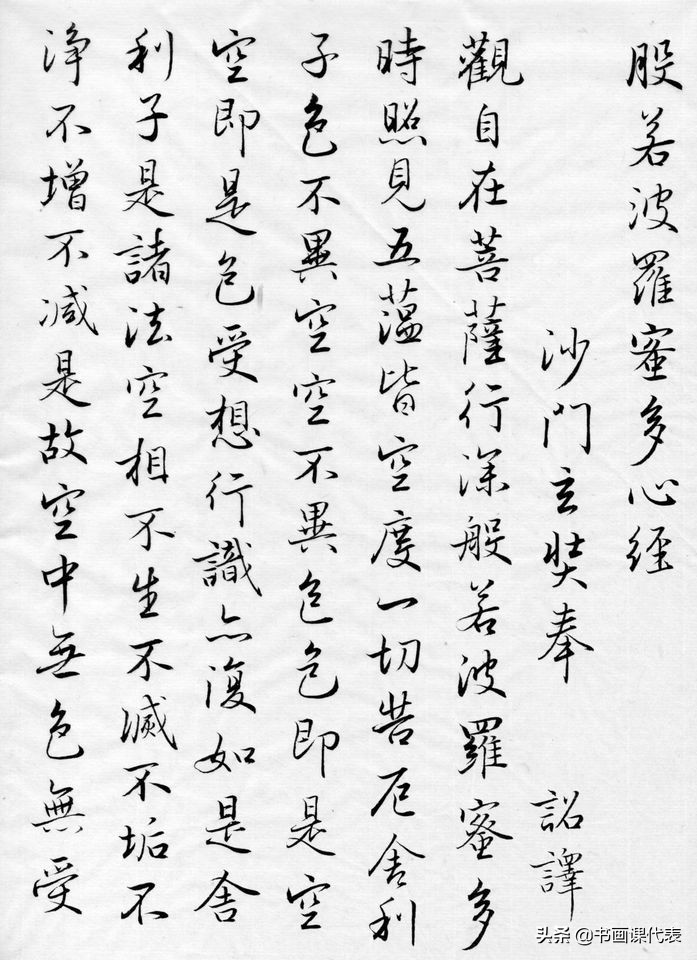 般若波羅蜜多心經
沙門玄奘奉 詔譯
觀自在菩薩行深般若波羅蜜多
時照見五蘊皆空度一切苦厄舍利
子色不異空空不異色色即是空
空即是色受想行識亦復如是舍
利子是諸法空相不生不滅不垢不
淨不增不減是故空中無色無受
头条 @书画课代表